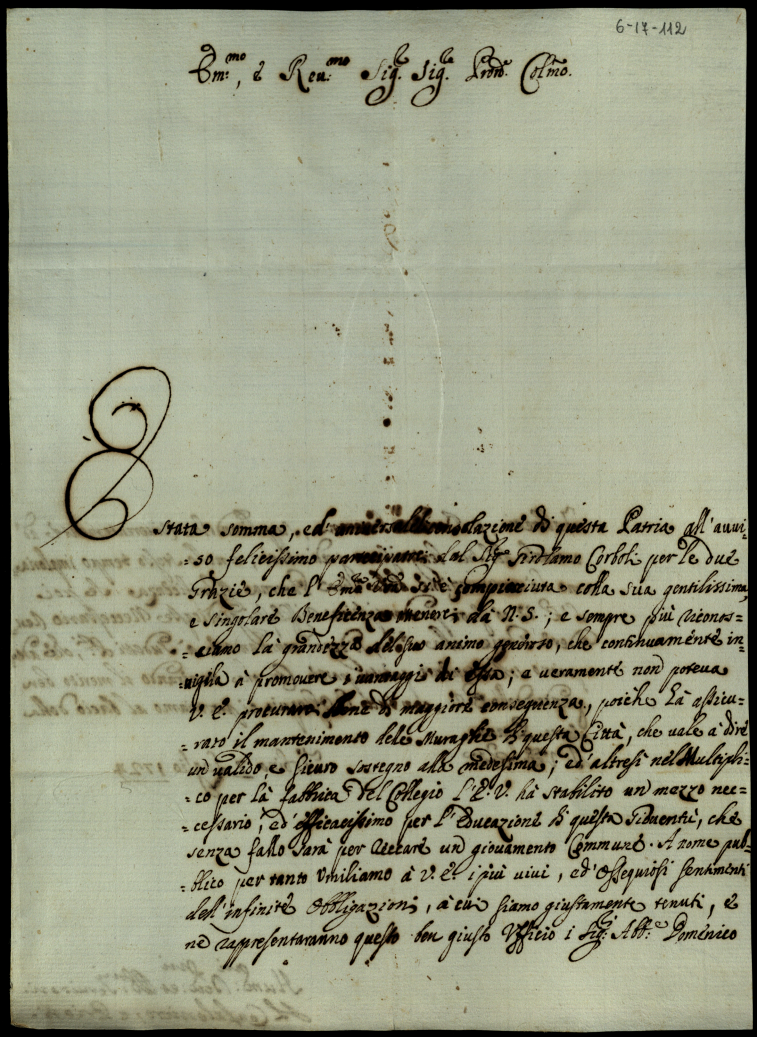 6-17-112
Em:mo, e Reu:mo Sig.r Sig.re Prōn. Colmo.
È stata somma, ed' universale consolazione di questa Patria all' auui=
=so felicissimo partecipatoci dal Sig.r Girolamo Corboli per le due
Grazie, che l' Em:a V.ra si è compiaciuta colla sua gentilissima,
e singolare Beneficenza ottenere da N.S.; e sempre più riconos=
=ciamo la grandezza del suo animo generoso, che continuamente in=
=uigila à promovere i uantaggi di essa; e veramente non poteua
V. E. procurare bene di maggiore conseguenza, poiche hà assicu=
=rato il mantenimento dele Muraglie di questa Città, che vale à dire
un' ualido, e sicuro sostegno alla medesima; ed' altresi nel Multipli=
=co per la fabbrica del Collegio l' E. V. hà stabilito un' mezzo nec=
=cessario, ed' efficacissimo per l' Educazione di questa Gioventù, che
senza fallo sarà per reccare un' giovamento Commune. A nome pub=
=blico per tanto Umiliamo à V. E. i più uiui, ed' Ossequiosi sentimenti
dell' infinite Obbligazioni, à cui siamo giustamente tenuti, e
ne rappresentaranno questo ben giusto Ufficio i Sig.ri Abb.e Domenico